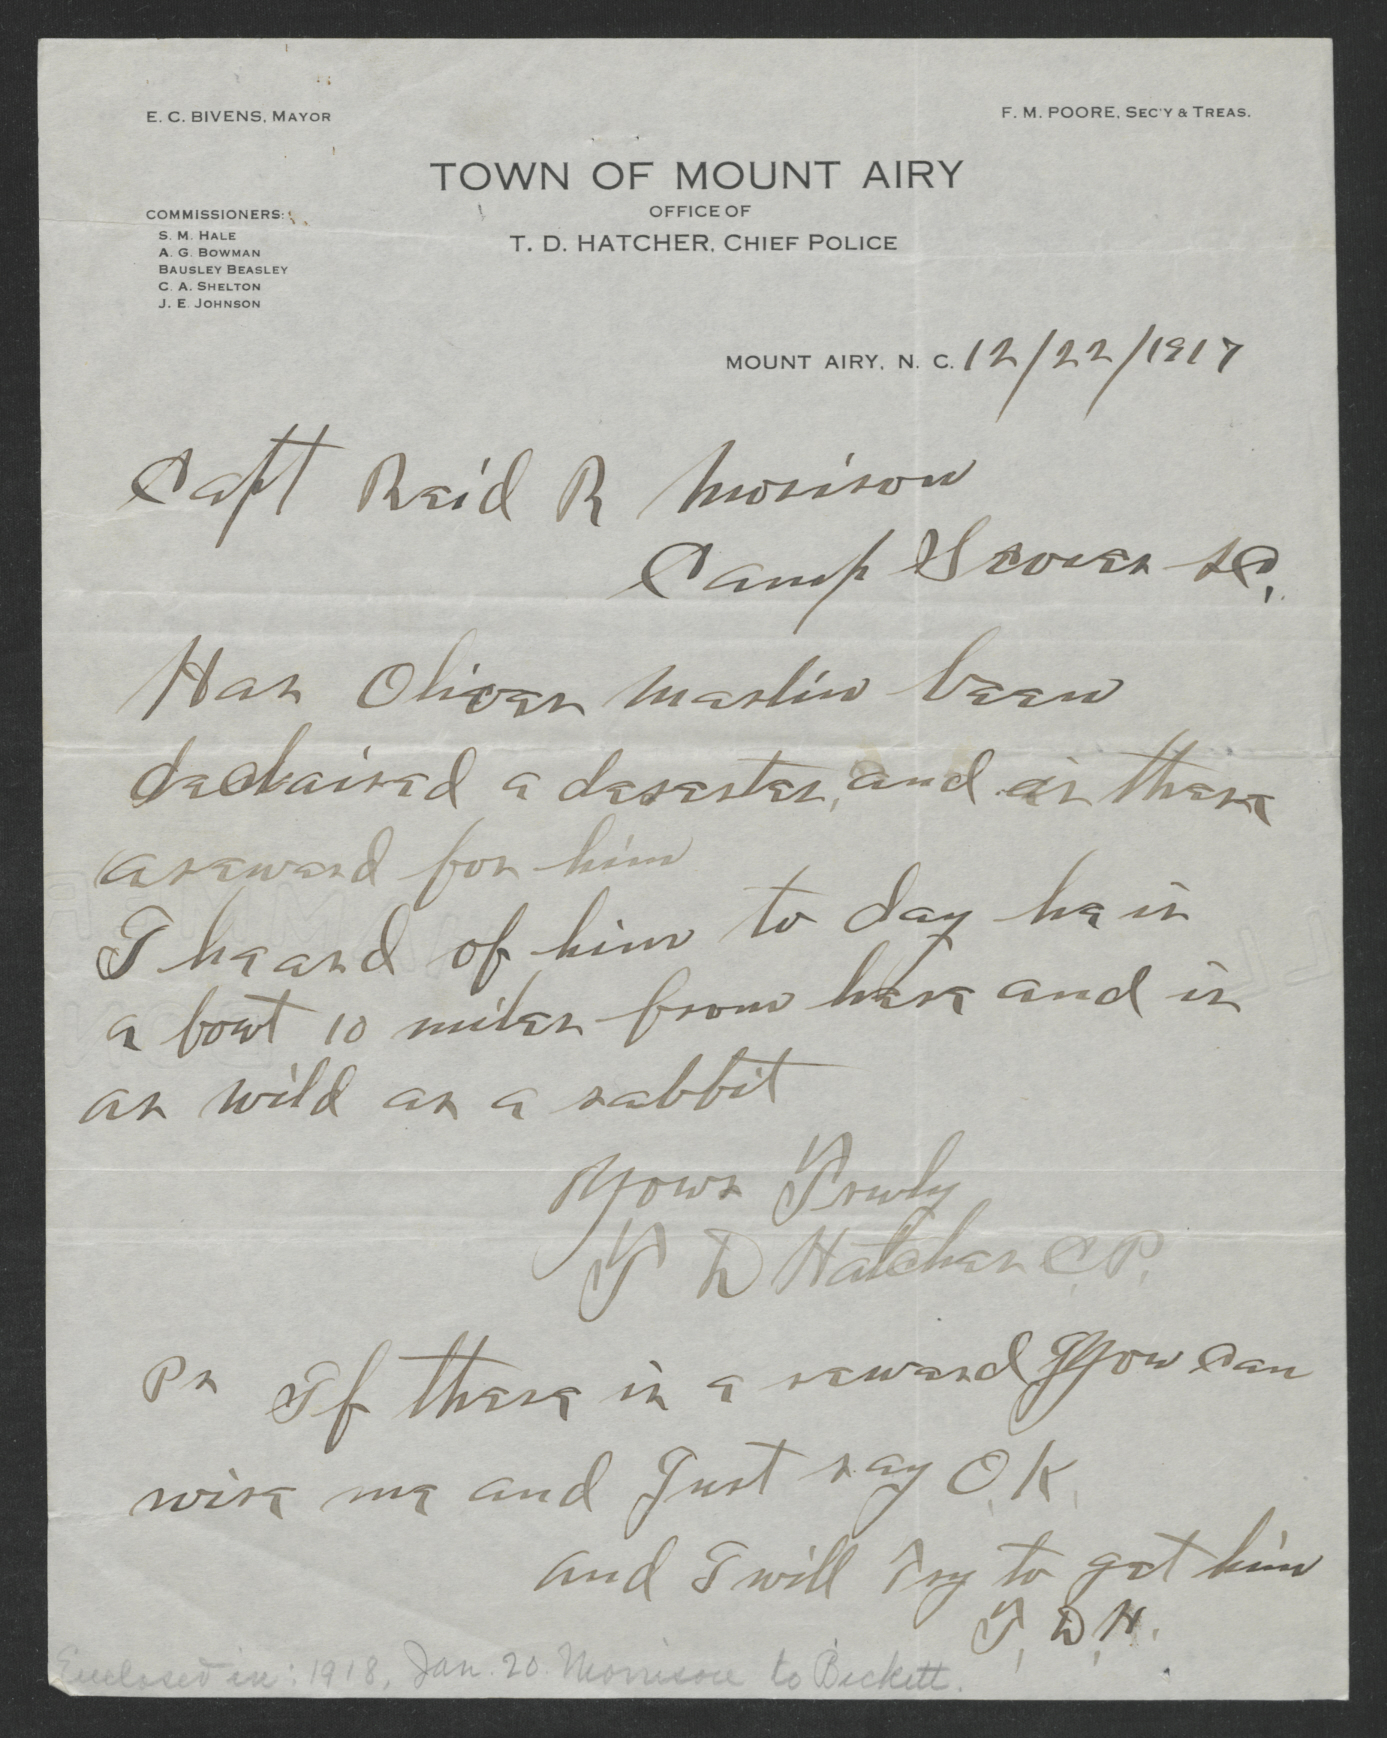 E. C. BIVENS, MAYOR
F. M. POORE, SEC'Y & TREAS.
TOWN OF MOUNT AIRY
OFFICE OF
T. D. HATCHER, CHIEF POLICE
COMMISSIONERS:
S. M. HALE
A. G. BOWMAN
BAUSLEY BEASLEY
C. A. SHELTON
J. E. JOHNSON
MOUNT AIRY, N. C. 12/22/1917
Capt Reid R Morison
Camp Sever SC,
Has Oliver Marlin been
declaired a deserter, and is there
a reward for him
I heard of him to day he is
a bout 10 miles from here and is
as wild as a rabbit
Yours Truly
T D Hatcher C.P.
Ps If there is a reward You can
wire me and Just say O.K.
and I will Try to get him
T. D. H.
Enclosed in: 1918, Jan. 20. Morrison to Beckett.